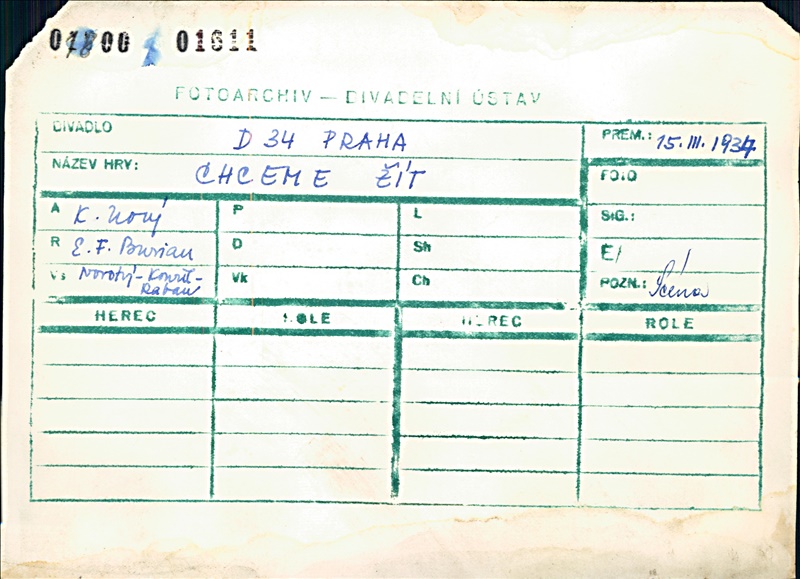 01611
FOTOARCHIV — DIVADELNÍ ÚSTAV
DIVADLO D 34 PRAHA PREM.: 15. III. 1934
NÁZEV HRY: CHCEME ŽÍT FOTO
A K. Nový P L SIG.:
R E. F. Burian D Sh Č/
Vs Novotný-Kouřil- Vk Ch POZN.: Scéna
Raban
HEREC ROLE HEREC ROLE